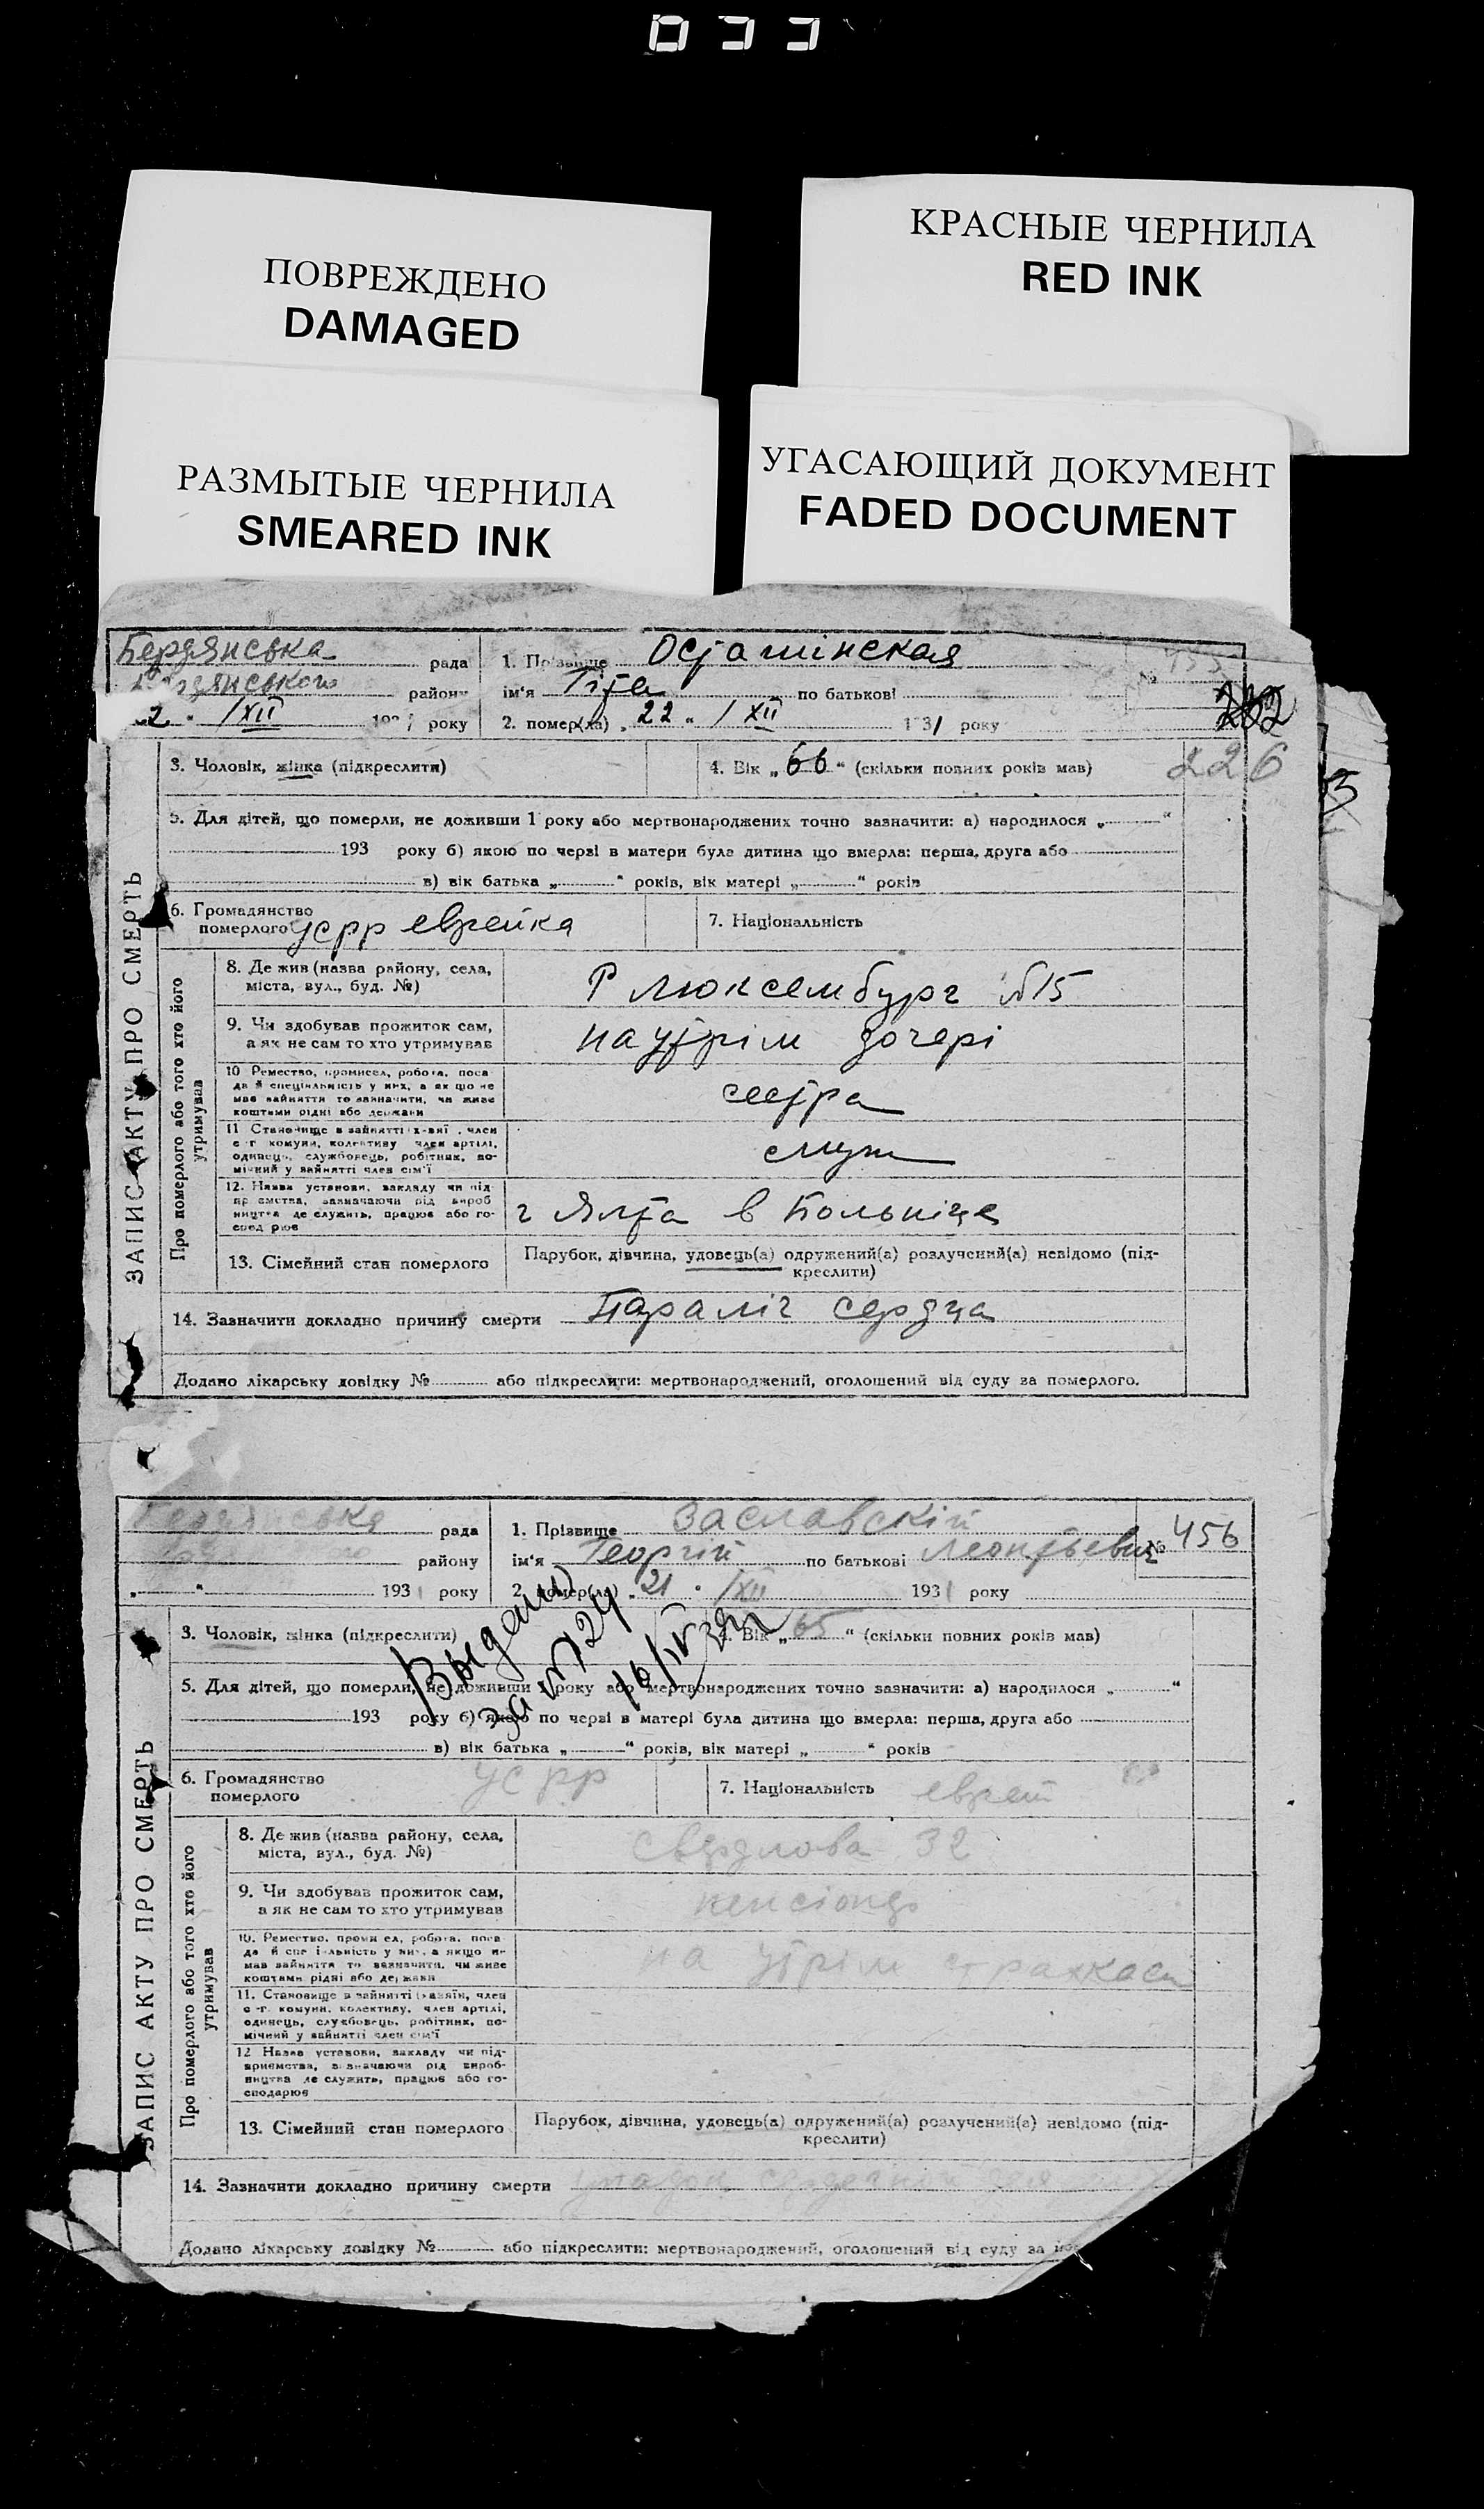 ПОВРЕЖДЕНО
DAMAGED
КРАСНЫЕ ЧЕРНИЛА
RED INK
РАЗМЫТЫЕ ЧЕРНИЛА
SMEARED INK
УГАСАЮЩИЙ ДОКУМЕНТ
FADED DOCUMENT
Бердянська рада
району
2 " /XII 193 року
1. Прізвище
ім'я по батькові
2. помер(ла) „ 22 “ / XII 1931 року
№ 455
226
ЗАПИС АКТУ ПРО СМЕРТЬ
3. Чоловік, жінка (підкреслити)
4. Вік „ 66 “ (скільки повних років мав)
5. Для дітей, що померли, не доживши 1 року або мертвонароджених точно зазначити: а) народилося „ “
193 року б) якою по черзі в матери була дитина що вмерла: перша, друга або
в) вік батька „ “ років, вік матері „ “ років
6. Громадянство
померлого усрр еврейка
7. Національність
Про померлого або того хто його
утримував
8. Де жив (назва району, села,
міста, вул., буд. №)
Р люксембург №15
9. Чи здобував прожиток сам,
а як не сам то хто утримував
на утрім дочері
10 Ремество, промисел, робота, поса
да й спеціяльність у них, а як що не
мав зайняття то зазначити, чи живе
коштами рідні або держави
сестра
11 Становище в зайнятті член
с-г комуни, колективу член артілі,
одинець, службовець, робітник, по-
мічний у зайнятті член сім'ї
служ
12. Назва установи, закладу чи під
приємства, зазначаючи рід вироб
ництва де служить, працює або го-
сподарює
г Ялта в больніце
13. Сімейний стан померлого
Парубок, дівчина, удовець(а) одружений(а) розлучений(а) невідомо (під-
креслити)
14. Зазначити докладно причину смерти Параліч сердца
Додано лікарську довідку № або підкреслити: мертвонароджений, оголошений від суду за померлого.
Бердянська рада
району
„ “ 193 року
1. Прізвище Заславскій
ім'я Георгій по батькові Леонтьевич
2. помер(ла) „ 21 “ /XII 1931 року
№ 456
Выдан
за № 724
16/IV
ЗАПИС АКТУ ПРО СМЕРТЬ
3. Чоловік, жінка (підкреслити)
4. Вік „ 65 “ (скільки повних років мав)
5. Для дітей, що померли, не доживши 1 року або мертвонароджених точно зазначити: а) народилося „ “
193 року б) якою по черзі в матері була дитина що вмерла: перша, друга або
в) вік батька „ “ років, вік матері „ “ років
6. Громадянство
померлого усрр
7. Національність еврей
Про померлого або того хто його
утримував
8. Де жив (назва району, села,
міста, вул., буд. №)
Свердлова 32
9. Чи здобував прожиток сам,
а як не сам то хто утримував
10. Ремество, промисел, робота, поса
да й спеціяльність у них, а якщо не
мав зайняття то зазначити, чи живе
коштами рідні або держави
на утрім страхкаси
11. Становище в зайнятті (хазяїн, член
с-г. комуни, колективу, член артілі,
одинець, службовець, робітник, по-
мічний у зайнятті член сім'ї
12 Назва установи, закладу чи під-
приємства, зазначаючи рід вироб-
ництва де служить, працює або го-
сподарює
13. Сімейний стан померлого
Парубок, дівчина, удовець(а) одружений(а) розлучений(а) невідомо (під-
креслити)
14. Зазначити докладно причину смерти
Додано лікарську довідку № або підкреслити: мертвонароджений, оголошений від суду за